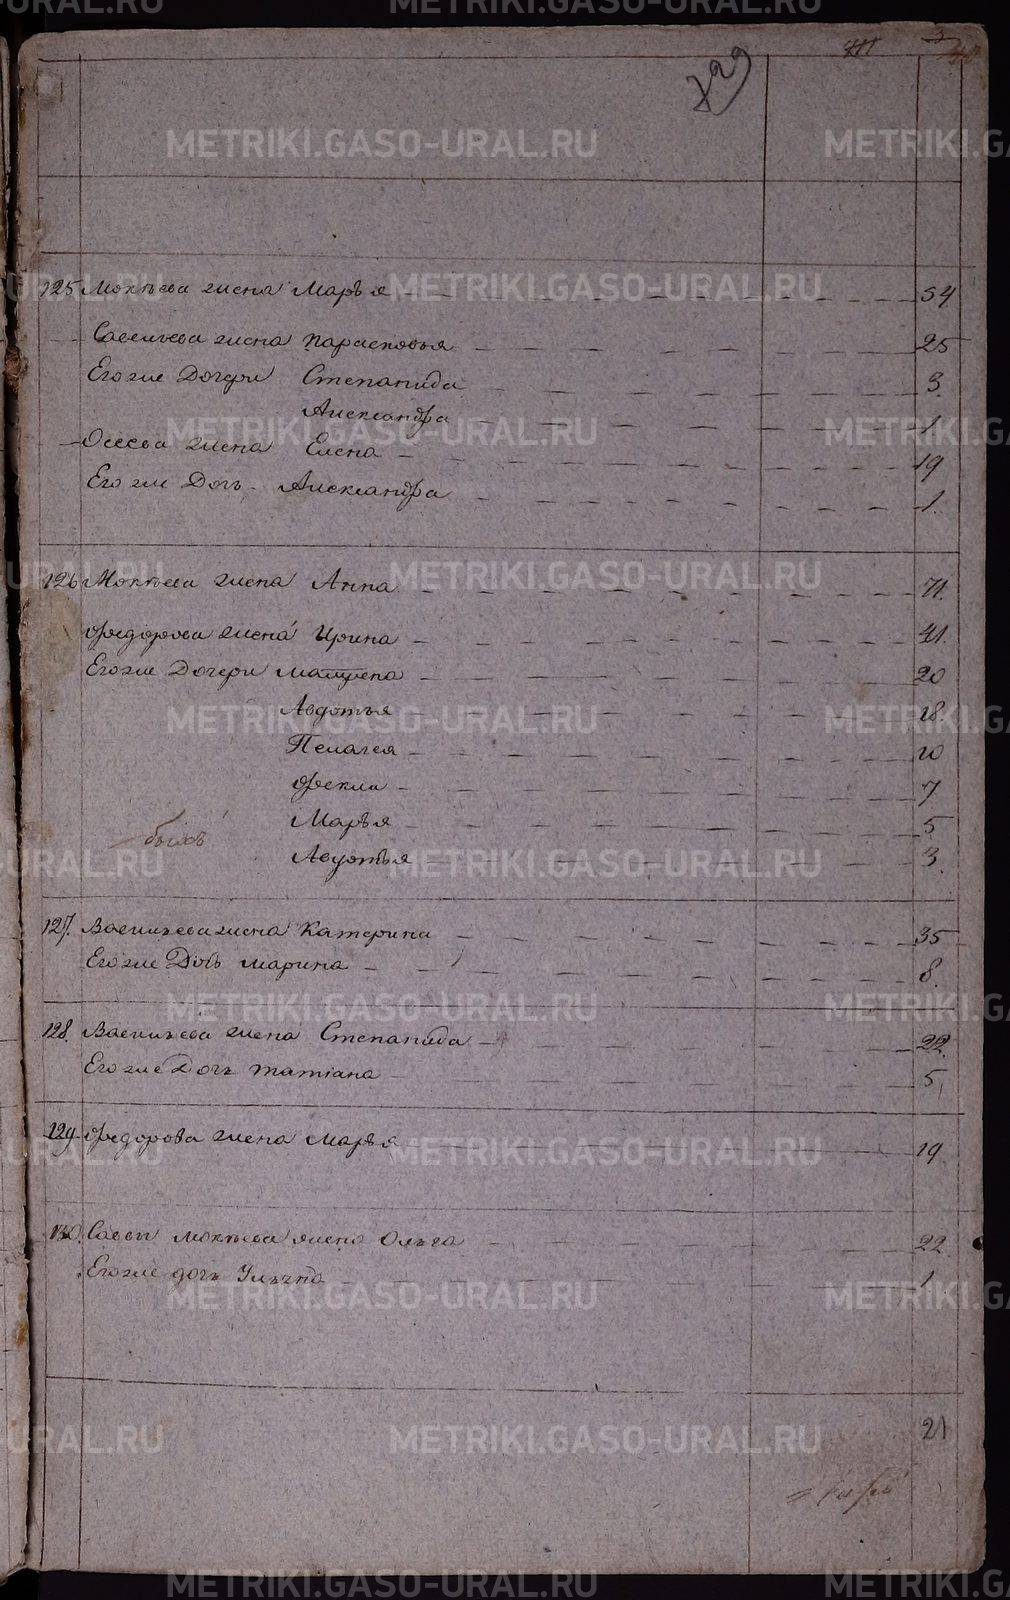 729
125. Мокѣева жена Марья 54
Савельева жена Парасковья 25
Его же Дочери Степанида 3.
Александра 1
Осеева жена Елена 19
Его же Дочь Александра 1.
126 Мокѣева жена Анна 71.
Федорова жена Ирина 41.
Его же Дочери Матрена 20
Авдотья 18
Пелагея 10
Фекла 7
Марья 5
Авдотья 3.
127. Васильева жена Катерина 35
Его же Дочь Марина 8.
128. Васильева жена Степанида 22.
Его же Дочь Татіана 5,
129 Федорова жена Марья 19
130. Саввы Мокѣева жена Ольга 22
Его же дочь Ульяна 1
21
METRIKI.GASO-URAL.RU